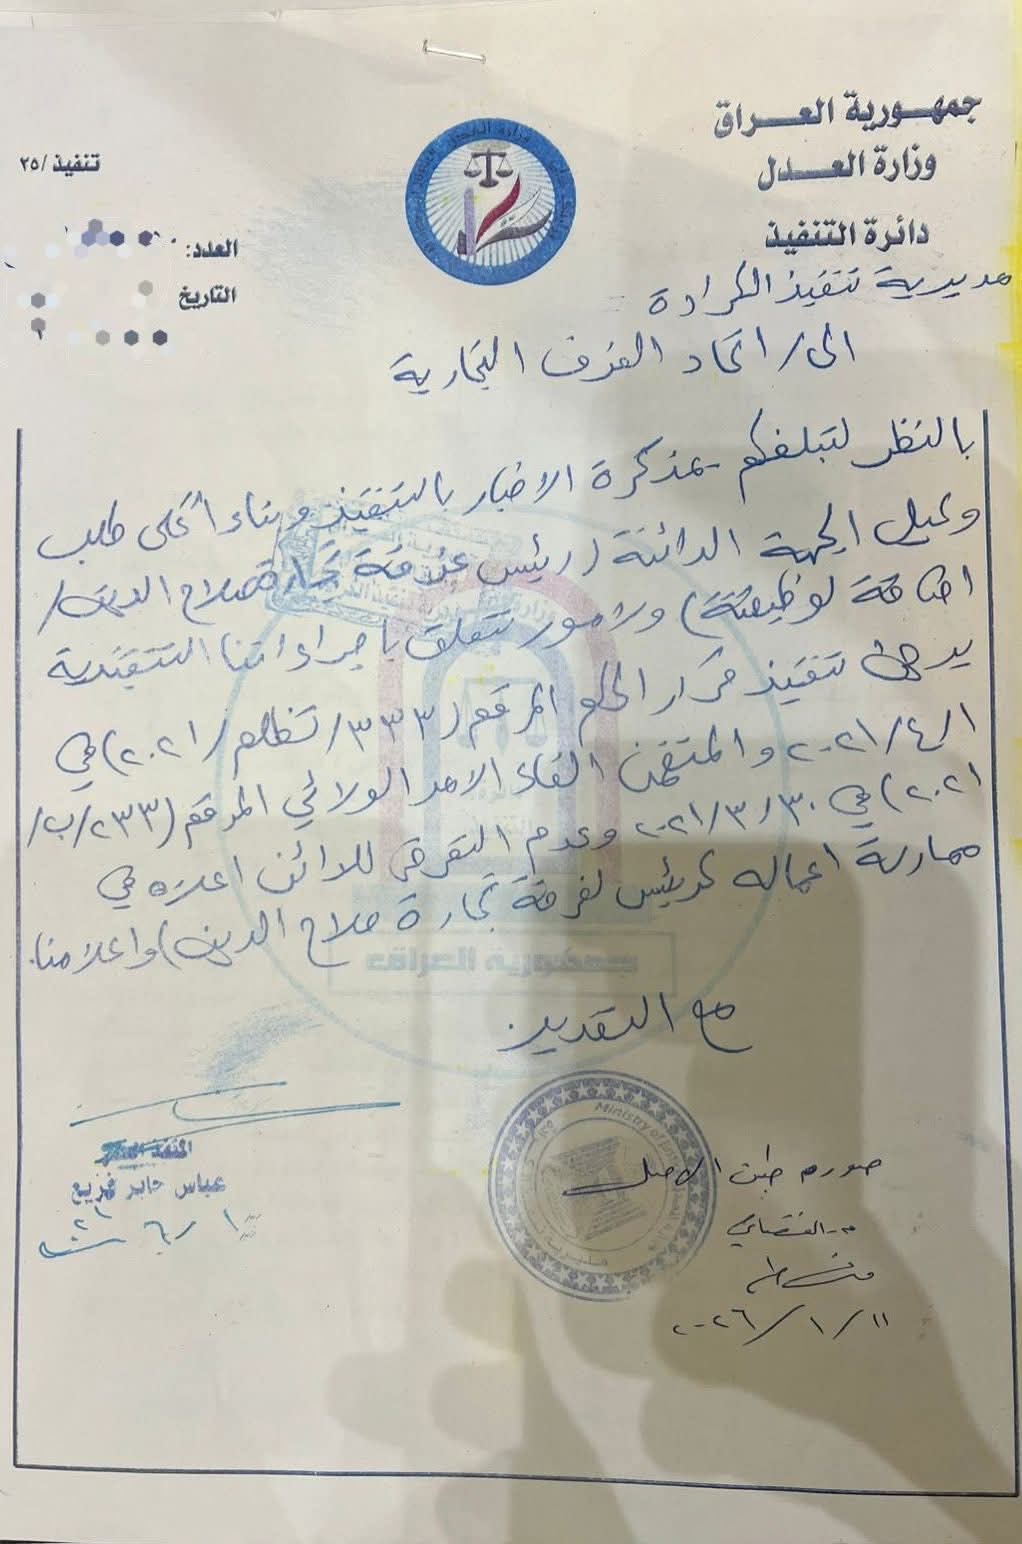 جمهورية العراق
وزارة العدل
دائرة التنفيذ
تنفيذ /٢٥
العدد:
التاريخ
مديرية تنفيذ الكرادة
الى / اتحاد الغرف التجارية
بالنظر لتبلغكم بمذكرة الاخبار بالتنفيذ وبناءاً على طلب
وكيل الجهة الدائنة (رئيس غرفة تجارة صلاح الدين /
اضافة لوظيفته) ولامور تتعلق باجراءاتنا التنفيذية
يرجى تنفيذ قرار الحكم المرقم (٣٣٣/تظلم/٢٠٢١) في
٢٠٢١/٤/١ والمتضمن الغاء الامر الولائي المرقم (٢٣٣/ب/
٢٠٢١) في ٢٠٢١/٣/٣٠ وعدم التعرض للدائن اعلاه في
ممارسة اعماله كرئيس لغرفة تجارة صلاح الدين) واعلامنا.
مع التقدير
جمهورية العراق
المنفذ العدل
عباس جابر
صورة طبق الاصل
٢٠٢٦/١/١١
Ministry of